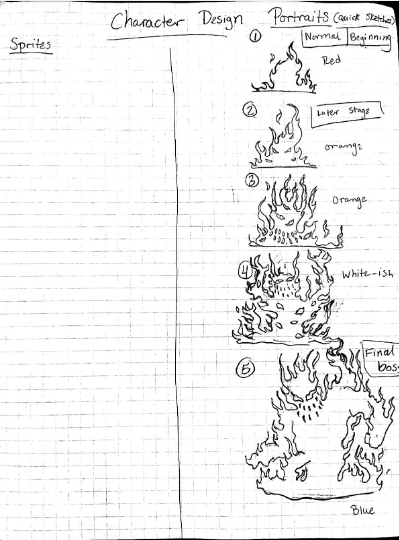 Character Design
Portraits (Quick Sketches)
Sprites
① Normal Beginning
Red
② Later Stage
orange
③
Orange
④ White-ish
⑤ Final boss
Blue